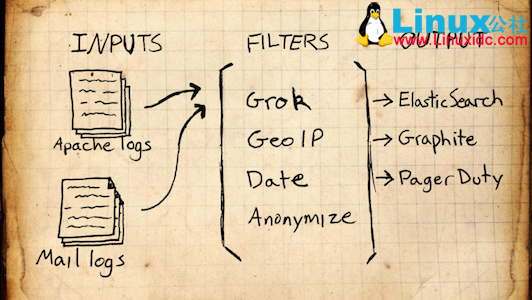 INPUTS
FILTERS
OUTPUT
Linux公社
www.Linuxidc.com
Apache logs
Mail logs
Grok
GeoIP
Date
Anonymize
ElasticSearch
Graphite
PagerDuty